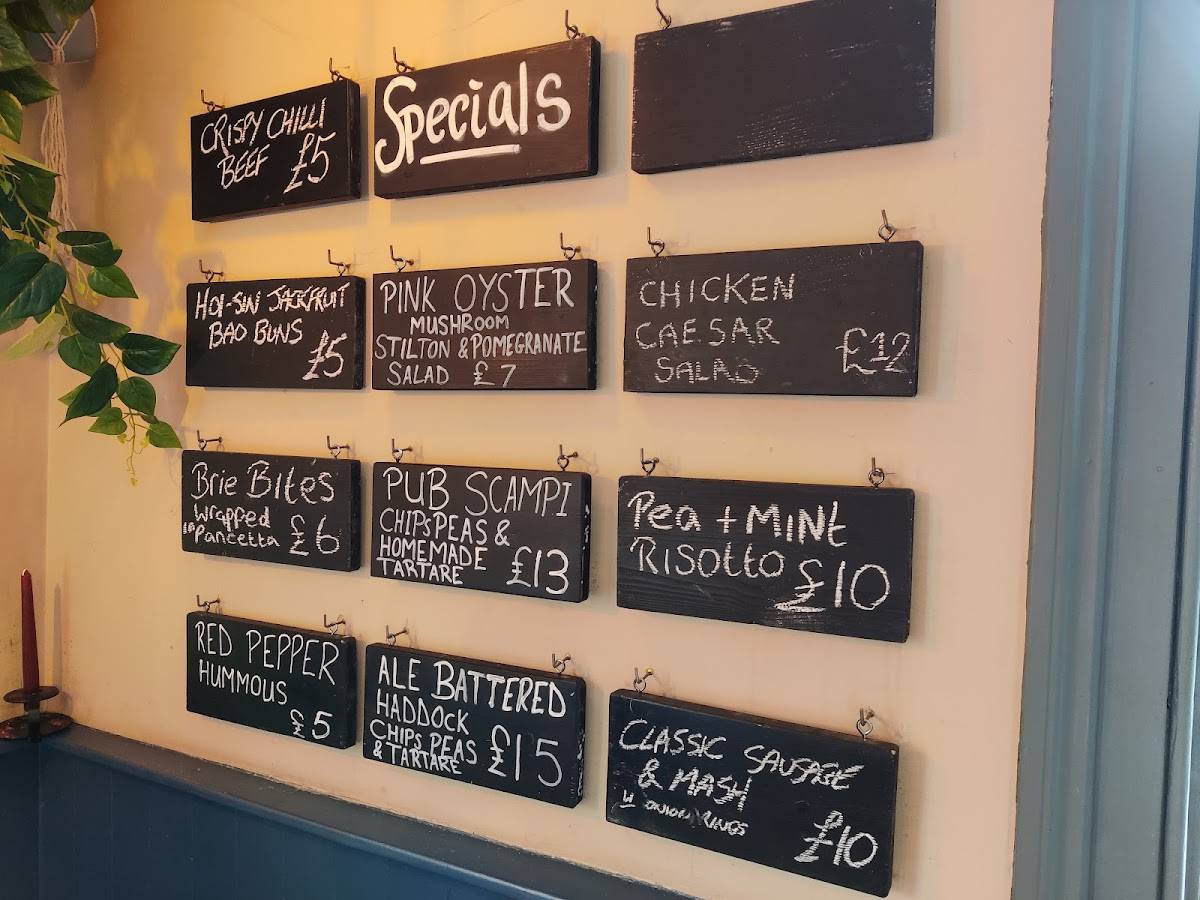 CRISPY CHILLI
BEEF £5
Specials
HOI-SIN JACKFRUIT
BAO BUNS
£5
PINK OYSTER
MUSHROOM
STILTON & POMEGRANATE
SALAD £7
CHICKEN
CAESAR
SALAD
£12
Brie Bites
Wrapped
in Pancetta £6
PUB SCAMPI
CHIPS PEAS &
HOMEMADE
TARTARE £13
Pea + MINt
Risotto £10
RED PEPPER
HUMMOUS
£5
ALE BATTERED
HADDOCK
CHIPS PEAS
& TARTARE £15
CLASSIC SAUSAGE
& MASH
W ONION RINGS
£10